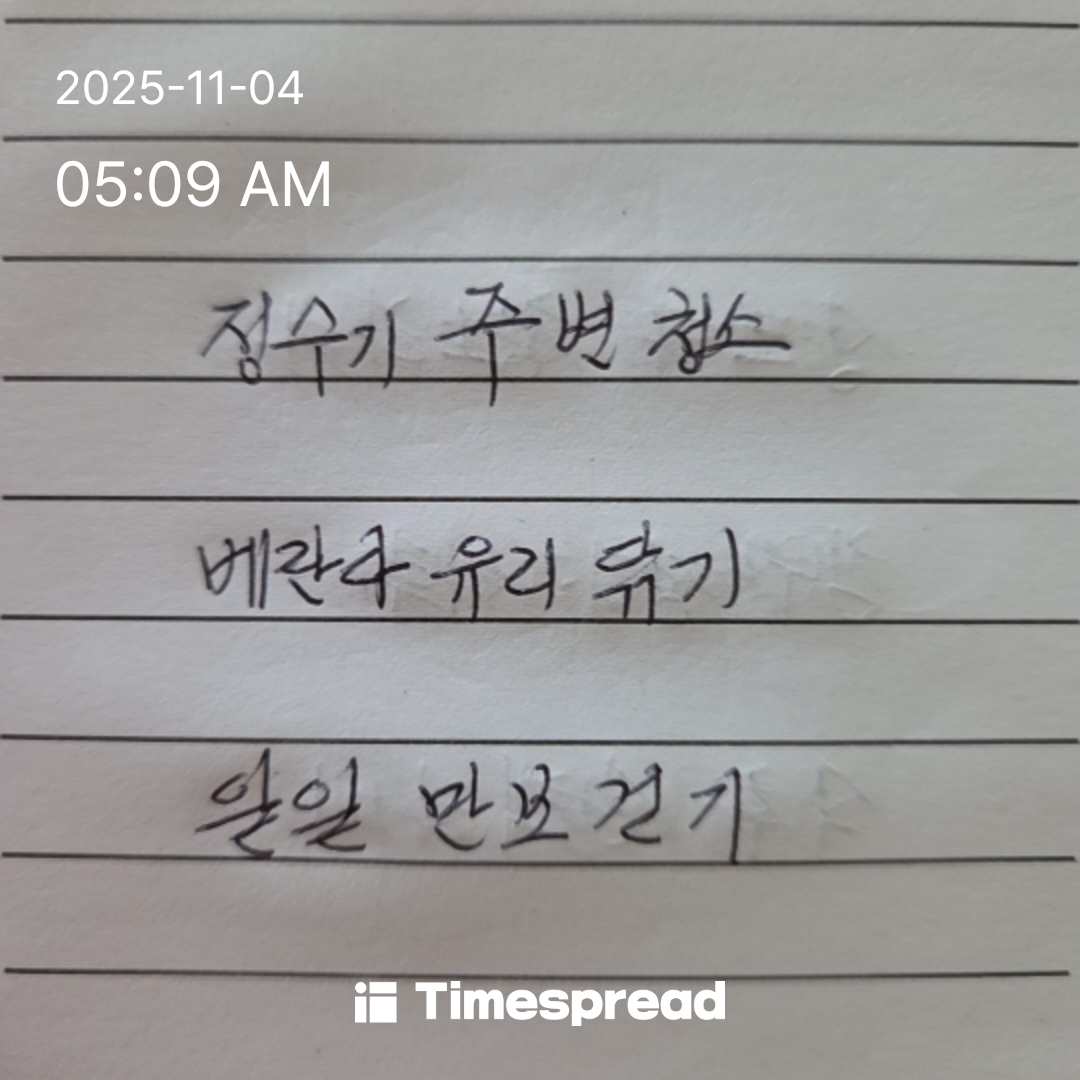 2025-11-04
05:09 AM
정수기 주변 청소
베란다 유리 닦기
일일 만보 걷기
Timespread